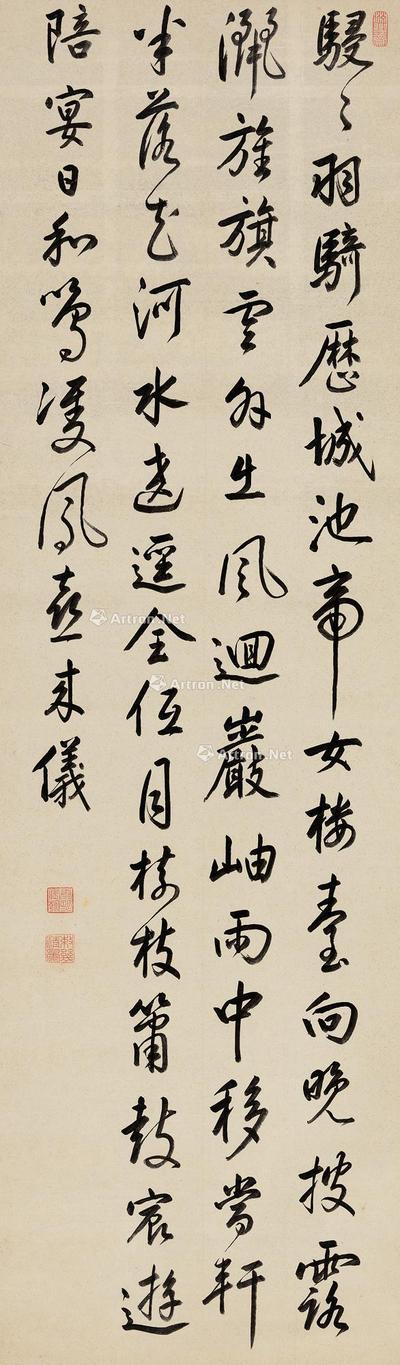 駸〻羽騎歷城池帝女樓臺向晚披露
灑旌旗雲外出風迴巖岫雨中移當軒
半落天河水遶逕全低月樹枝簫鼓宸遊
陪宴日和鳴雙鳳喜來儀
Artron.Net
Artron.Net
Artron.Net